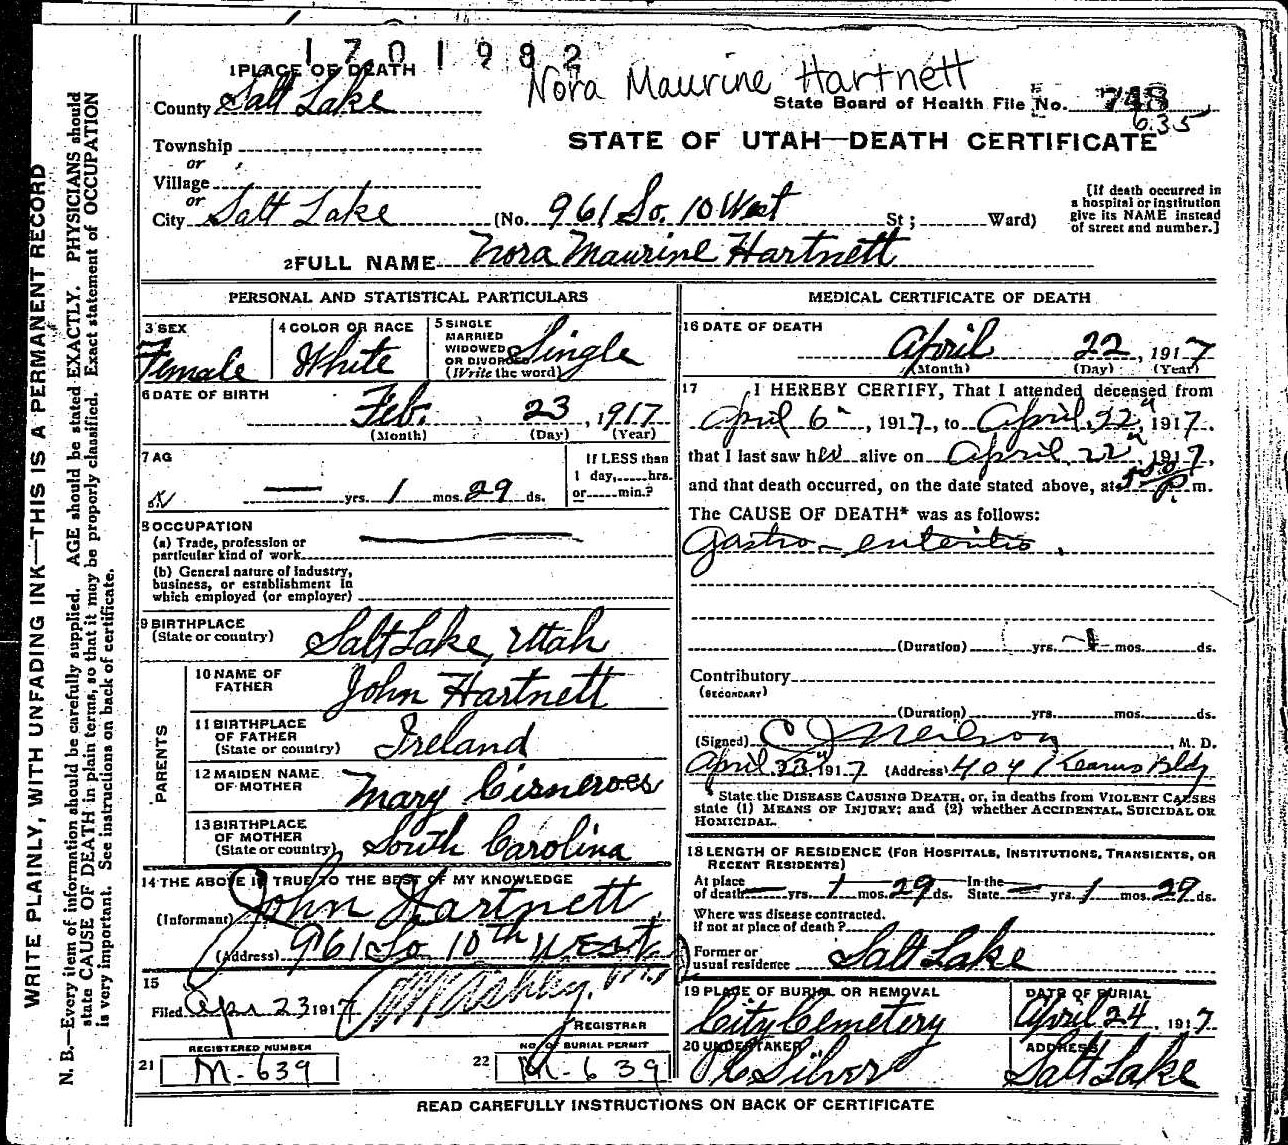 1701982
Nora Maurine Hartnett
1 PLACE OF DEATH
County Salt Lake
State Board of Health File No. 743
635
STATE OF UTAH—DEATH CERTIFICATE
Township
or
Village
or
City Salt Lake (No. 961 So. 10 West St; Ward)
[If death occurred in a hospital or institution give its NAME instead of street and number.]
2 FULL NAME Nora Maurine Hartnett
PERSONAL AND STATISTICAL PARTICULARS
3 SEX
Female
4 COLOR OR RACE
White
5 SINGLE
MARRIED
WIDOWED
OR DIVORCED
(Write the word)
Single
6 DATE OF BIRTH
Feb. 23, 1917
(Month) (Day) (Year)
7 AG
— yrs. 1 mos. 29 ds.
If LESS than
1 day, hrs.
or min.?
8 OCCUPATION
(a) Trade, profession or
particular kind of work
(b) General nature of industry,
business, or establishment in
which employed (or employer)
9 BIRTHPLACE
(State or country)
Salt Lake, Utah
PARENTS
10 NAME OF
FATHER
John Hartnett
11 BIRTHPLACE
OF FATHER
(State or country)
Ireland
12 MAIDEN NAME
OF MOTHER
Mary Cisneroes
13 BIRTHPLACE
OF MOTHER
(State or country)
South Carolina
14 THE ABOVE IS TRUE TO THE BEST OF MY KNOWLEDGE
(Informant) John Hartnett
(Address) 961 So 10th West
15
Filed Apr 23 1917
Ashley
REGISTRAR
REGISTERED NUMBER
21 M-639
NO. OF BURIAL PERMIT
22 M-639
MEDICAL CERTIFICATE OF DEATH
16 DATE OF DEATH
April 22, 1917
(Month) (Day) (Year)
17 I HEREBY CERTIFY, That I attended deceased from
April 6, 1917, to April 22, 1917
that I last saw her alive on April 22, 1917,
and that death occurred, on the date stated above, at 5 P. m.
The CAUSE OF DEATH* was as follows:
Gastro-enteritis.
(Duration) yrs. 1 mos. ds.
Contributory
(SECONDARY)
(Duration) yrs. mos. ds.
(Signed) C J Neilson, M. D.
April 23 1917 (Address) 404 Kearns Bldg
* State the DISEASE CAUSING DEATH, or, in deaths from VIOLENT CAUSES
state (1) MEANS OF INJURY; and (2) whether ACCIDENTAL, SUICIDAL OR
HOMICIDAL.
18 LENGTH OF RESIDENCE (FOR HOSPITALS, INSTITUTIONS, TRANSIENTS, OR
RECENT RESIDENTS)
At place
of death — yrs. 1 mos. 29 ds. In the
State — yrs. 1 mos. 29 ds.
Where was disease contracted.
If not at place of death?
Former or
usual residence Salt Lake
19 PLACE OF BURIAL OR REMOVAL
City Cemetery
DATE OF BURIAL
April 24 1917
20 UNDERTAKER
Silver
ADDRESS
Salt Lake
READ CAREFULLY INSTRUCTIONS ON BACK OF CERTIFICATE
WRITE PLAINLY, WITH UNFADING INK—THIS IS A PERMANENT RECORD
N. B.—Every item of information should be carefully supplied. AGE should be stated EXACTLY. PHYSICIANS should
state CAUSE OF DEATH in plain terms, so that it may be properly classified. Exact statement of OCCUPATION
is very important. See instructions on back of certificate.